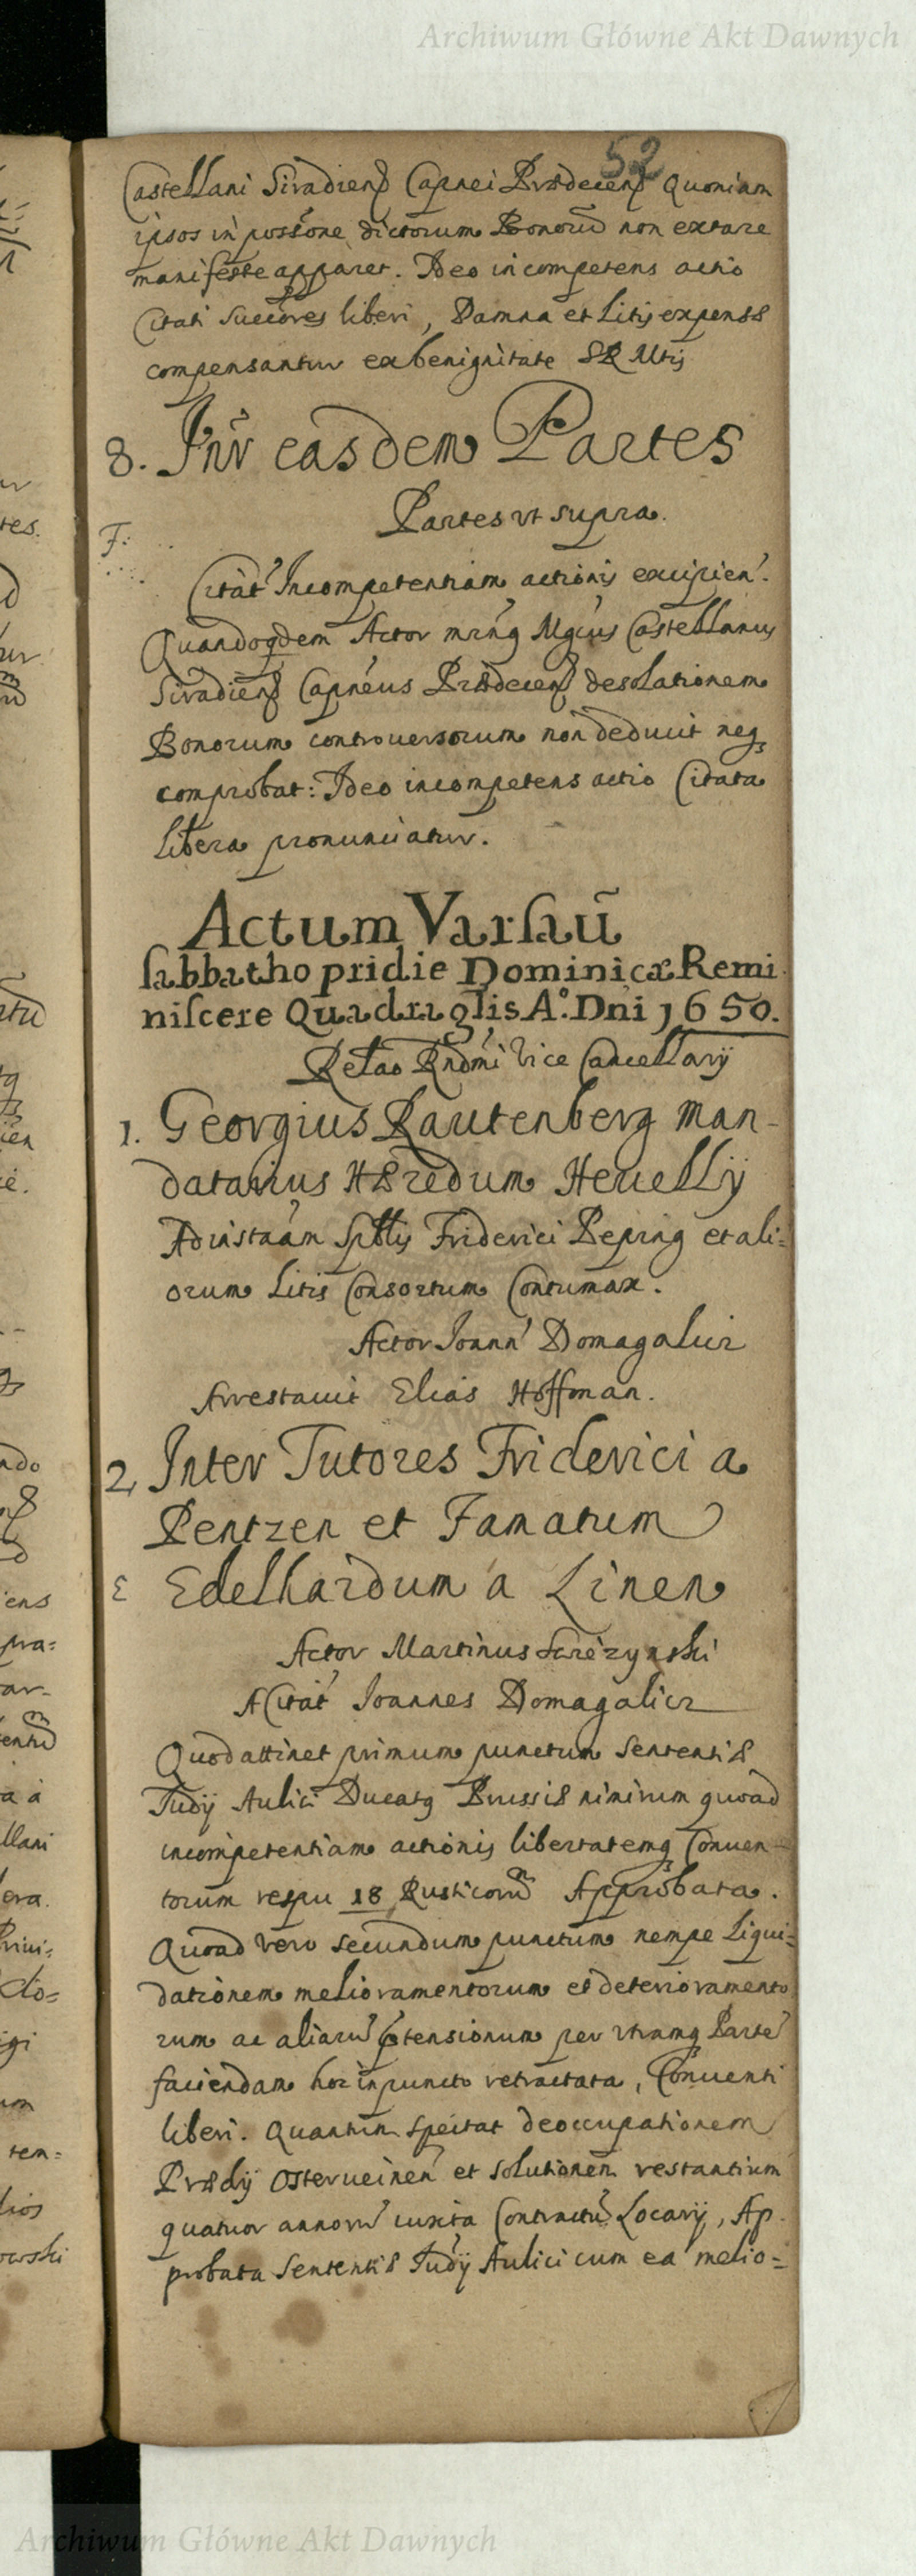 Archiwum Główne Akt Dawnych
52
Castellani Siradiens Capnei Prædecess Quoniam
ipsos in possõne dictorum Bonorũ non extare
manifeste apparet. Ideo incompetens actio
Citati Succõres liberi, Damna et Litis expensæ
compensantur ex benignitate SR Mtis
8. Inr̃ easdem Partes
Partes vt supra.
F.
Citat' Incompetentiam actionis excipien'.
Quandoqdem Actor mrñg Mgcus Castellanus
Siradiens Capneus Prædecess desolationem
Bonorum controuersorum non deducit neq
comprobat: Ideo incompetens actio Citata
libera pronunciatur.
Actum Varsaũ
sabbatho pridie Dominicæ Remi
niscere Quadraglis A°. Dni 1650.
Relao Rndmi Vice Cancellarij
1. Georgius Rautenberg man-
datarius Hæredum Heuellij
Ad instaam Spblis Friderici Peping et ali:
orum Litis Consortum Contumax.
Actor Joann' Domagalicz
Arrestauit Elias Hoffman.
2. Inter Tutores Friderici a
Pentzen et Famatum
E Edelhardum a Linen
Actor Martinus
A Citat' Joannes Domagalicz
Quod attinet primum punctum Sententiæ
Judij Aulici Ducatg Prussiæ nimirum quoad
incompetentiam actionis libertatemq Conuen-
torum respu 18 Rusticorũ Approbata.
Quoad vero secundum punctum nempe Liqui=
dationem melioramentorum et deterioramento
rum ac aliarũ ptensionum per vtramq Parte
faciendam hoc in puncto retractata, Conuenti
liberi. Quantum spectat deoccupationem
Prædij Osterueinen et solutionem restantium
quatuor annorũ iuxta Contractũ Locarij, Ap-
probata Sententiæ Judij Aulici cum ea melio=
Archiwum Główne Akt Dawnych